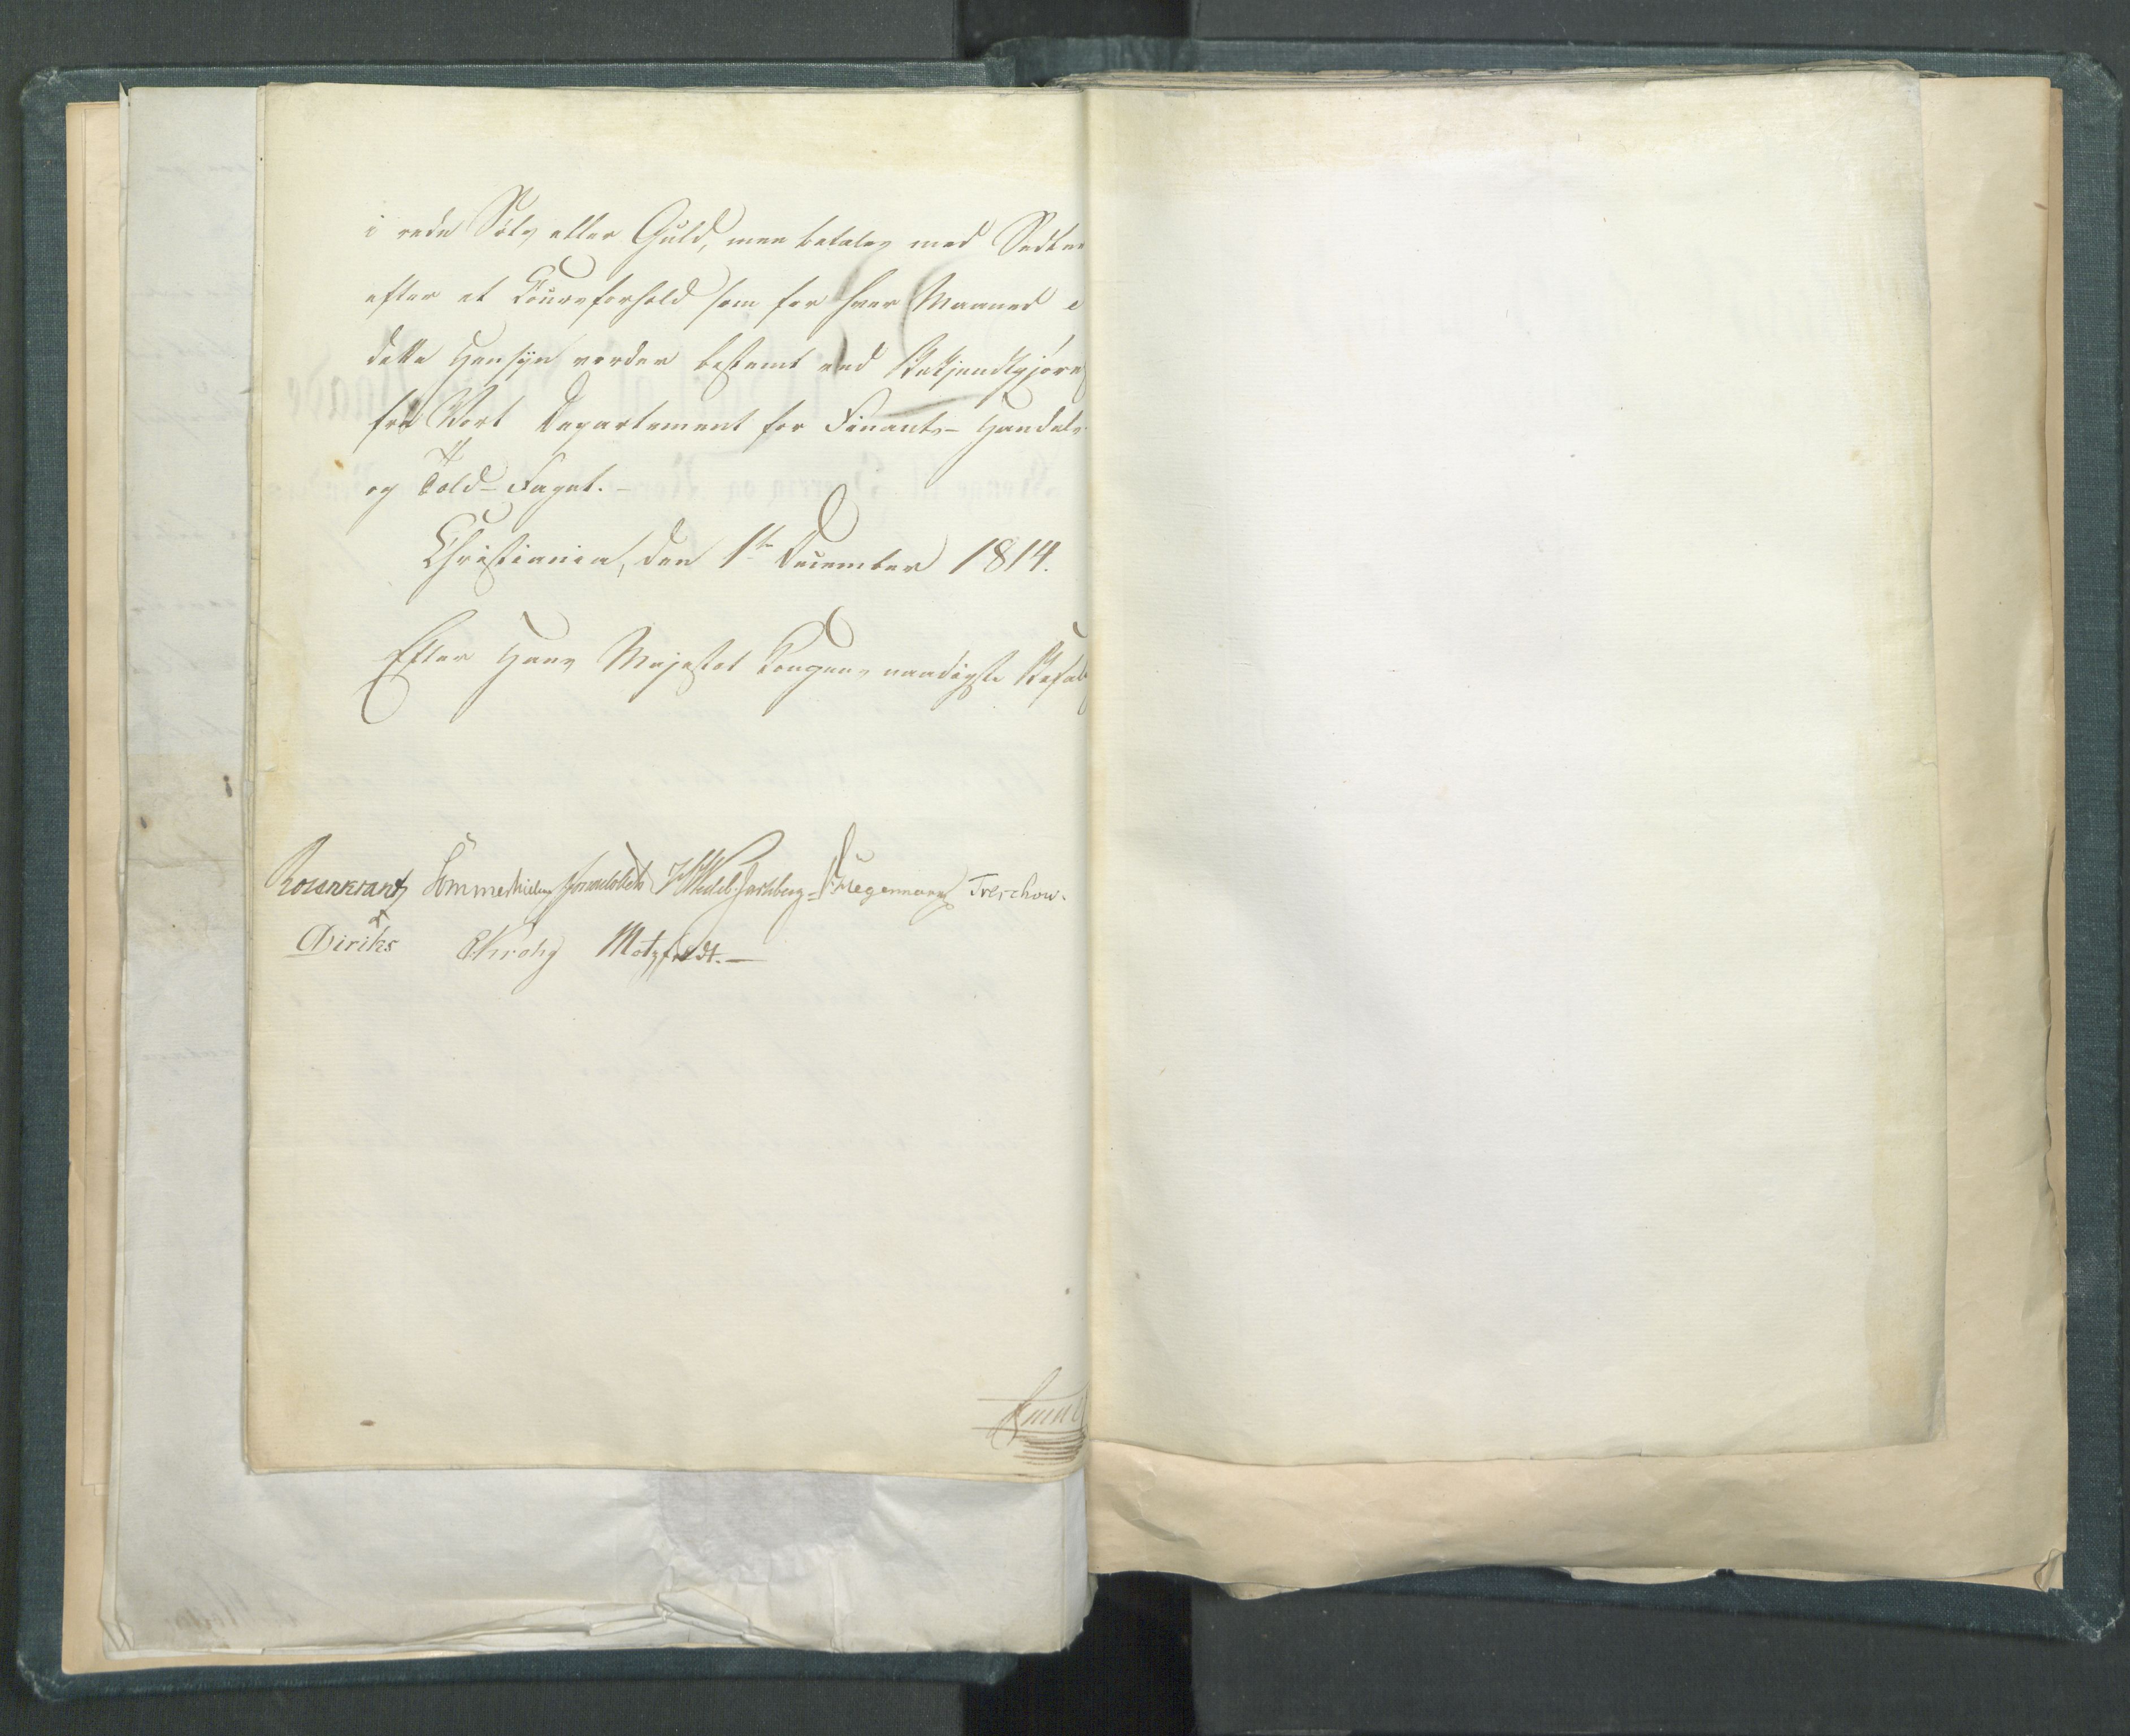 i rede Sølv eller Guld, men betales med Sedler
efter et Coursforhold som for hver Maaned i
dette Hensyn vorder bestemt ved Bekjendtgjøre
fra Vort Departement for Finants- Handels-
og Told-Faget. -
Christiania, den 1ste December 1814.
Efter Hans Majestæt Kongens naadigste Befal
Rosenkrantz Sommerhielm JHWedel-Jarlsberg - Hegermann Treschow.
Diriks CKrohg Motzfeldt. -